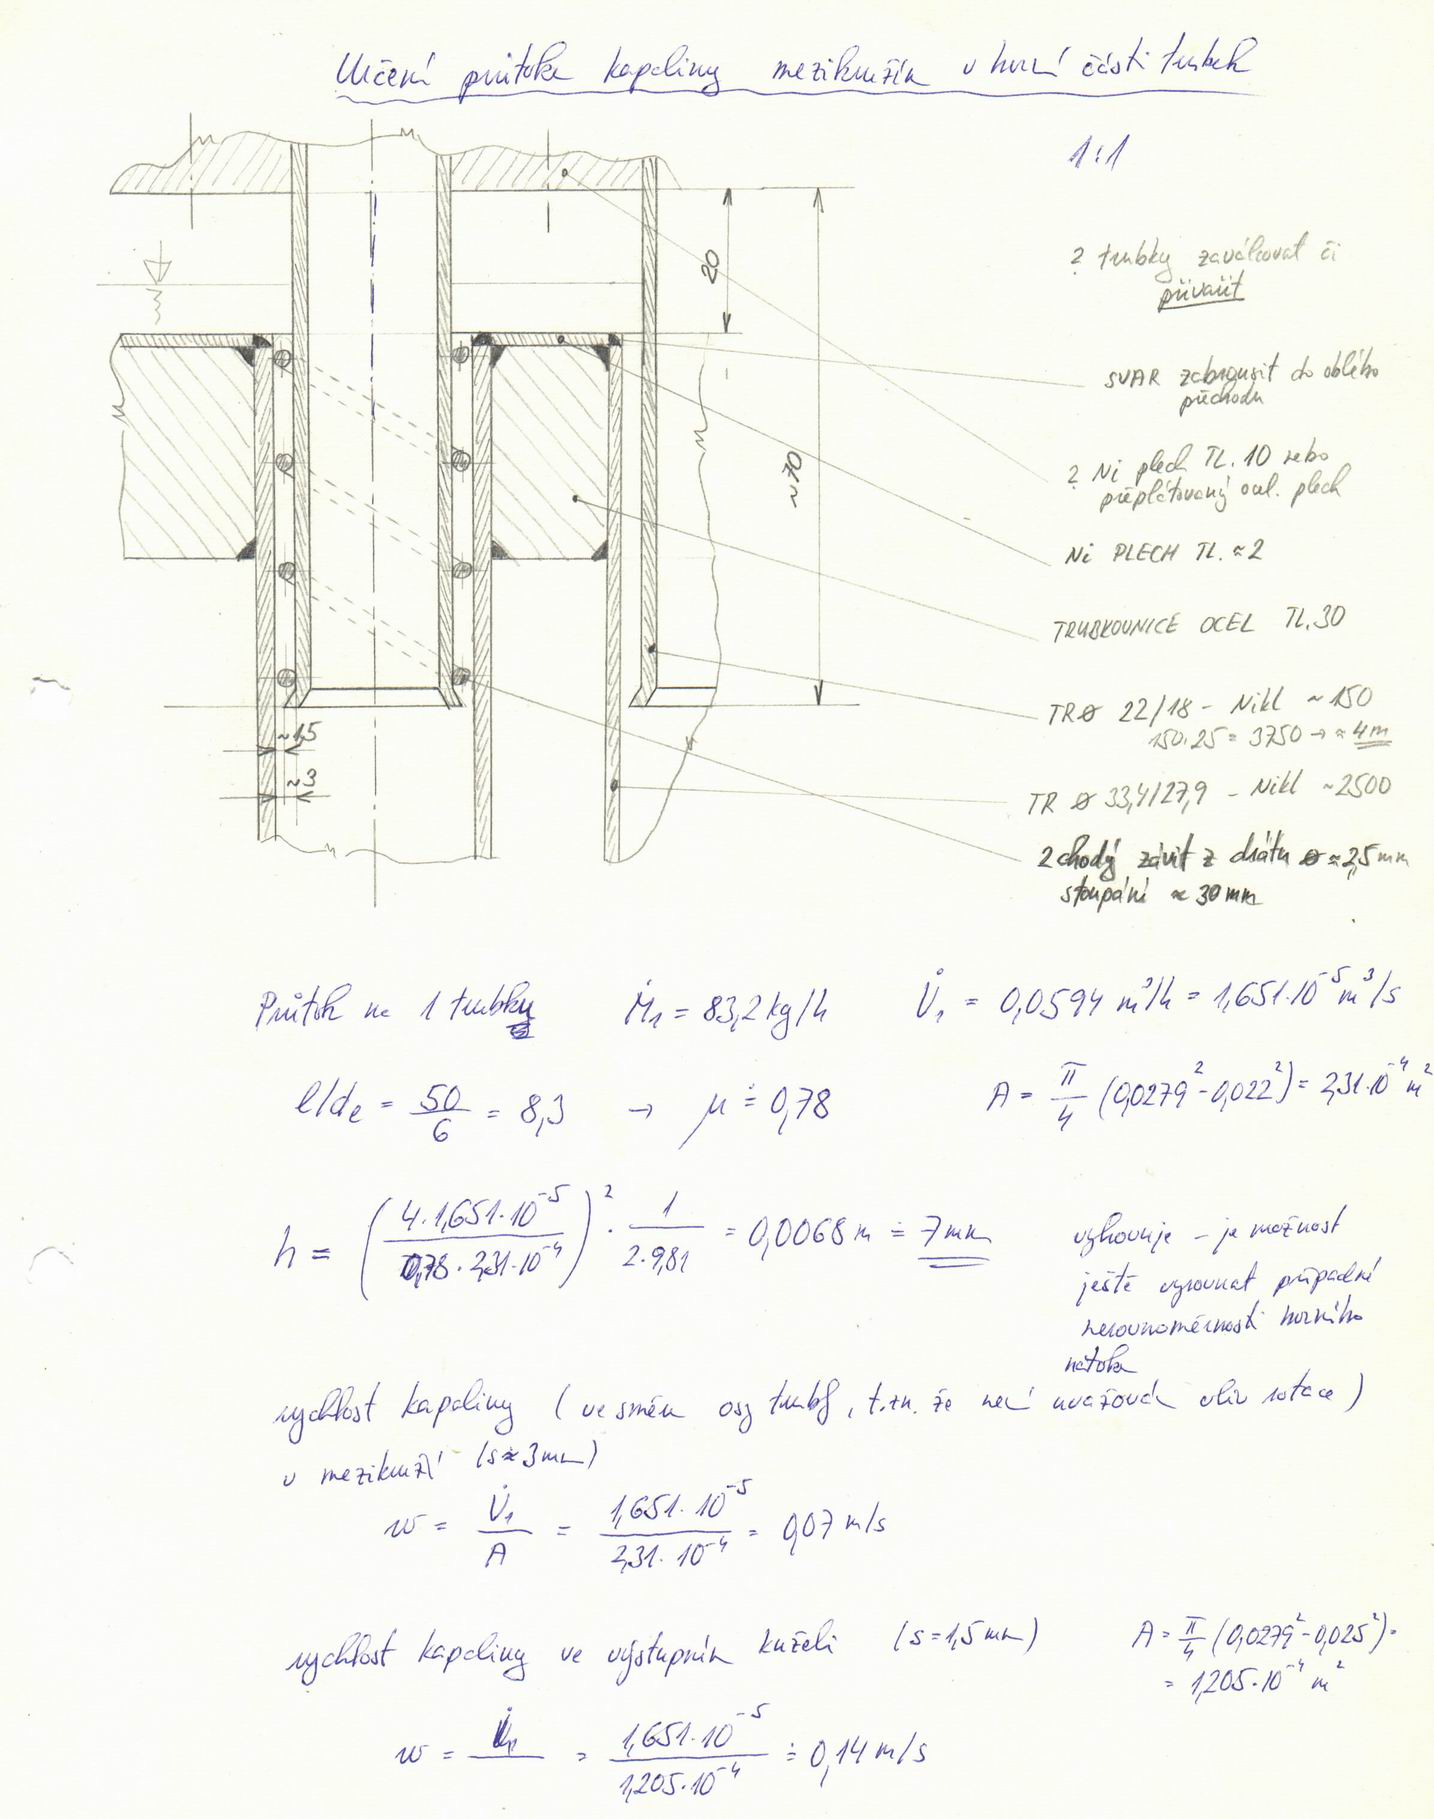 Určení průtoku kapaliny mezikružím v horní části trubek
1:1
20
~70
~1,5
~3
? trubky zaválcovat či
přivařit
SVAR zabrousit do oblého
přechodu
? Ni plech TL. 10 nebo
přeplátovaný ocel. plech
Ni PLECH TL. ≈ 2
TRUBKOVNICE OCEL TL. 30
TR Ø 22/18 - Nikl ~150
150·25 = 3750 → ≈ 4m
TR Ø 33,4/27,9 - Nikl ~2500
2 chodý závit z drátu Ø ≈ 2,5 mm
stoupání ≈ 30 mm
Průtok na 1 trubku Ṁ₁ = 83,2 kg/h V̇₁ = 0,0594 m³/h = 1,651·10⁻⁵ m³/s
l/de = 50/6 = 8,3 → μ ≐ 0,78 A = π/4 (0,0279² - 0,022²) = 2,31·10⁻⁴ m²
h = (4·1,651·10⁻⁵ / 0,78·2,31·10⁻⁴)² · 1/2·9,81 = 0,0068 m ≐ 7 mm
vyhovuje - je možnost
ještě vyrovnat případné
nerovnoměrnosti horního
nátoku
rychlost kapaliny (ve směru osy trubky, t.zn. že není uvažován vliv rotace)
v mezikruží (s ≈ 3 mm)
w = V̇₁/A = 1,651·10⁻⁵ / 2,31·10⁻⁴ = 0,07 m/s
rychlost kapaliny ve výstupním kuželi (s = 1,5 mm) A = π/4 (0,0279² - 0,025²) =
= 1,205·10⁻⁴ m²
w = V̇₁/ = 1,651·10⁻⁵ / 1,205·10⁻⁴ ≐ 0,14 m/s